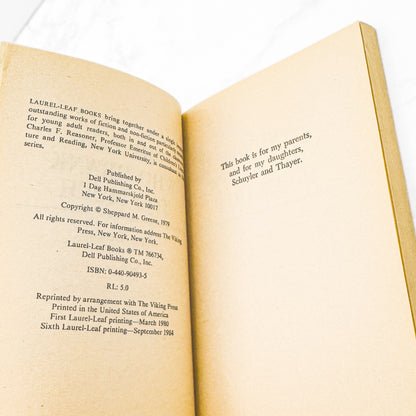 LAUREL-LEAF BOOKS bring together under a single
outstanding works of fiction and non-fiction particularly
for young adult readers, both in and out of the
Charles F. Reasoner, Professor Emeritus of Children's
ture and Reading, New York University, is consultant to
series.
Published by
Dell Publishing Co., Inc.
1 Dag Hammarskjold Plaza
New York, New York 10017
Copyright © Sheppard M. Greene, 1979
All rights reserved. For information address The Viking
Press, New York, New York.
Laurel-Leaf Books ® TM 766734,
Dell Publishing Co., Inc.
ISBN: 0-440-90493-5
RL: 5.0
Reprinted by arrangement with The Viking Press
Printed in the United States of America
First Laurel-Leaf printing—March 1980
Sixth Laurel-Leaf printing—September 1984
This book is for my parents,
and for my daughters,
Schuyler and Thayer.